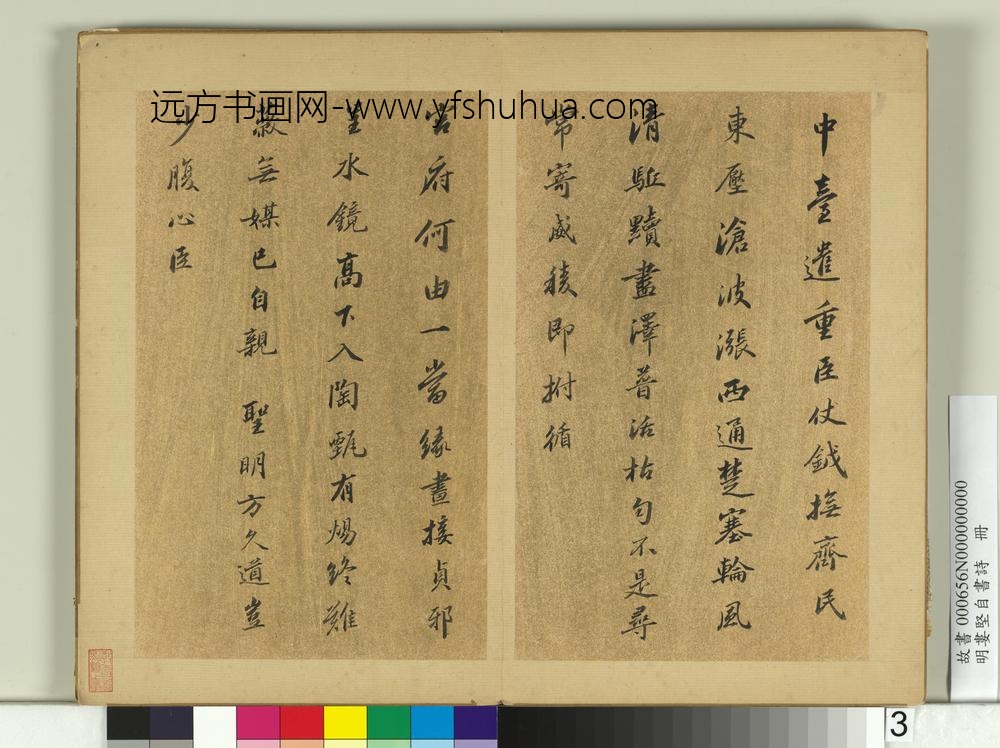 远方书画网-www.yfshuhua.com
中臺遣重臣仗鉞撫齊民
東壓滄波漲西通楚塞輪風
清驅黷盡澤普活枯勻不是尋
常寄威稜即拊循
當府何由一當緣晝接貞邪
呈水鏡高下入陶甄有煬終難
蔽無媒已自親 聖明方久道豈
少腹心臣
故書 000656N000000000
明婁堅自書詩 冊
3